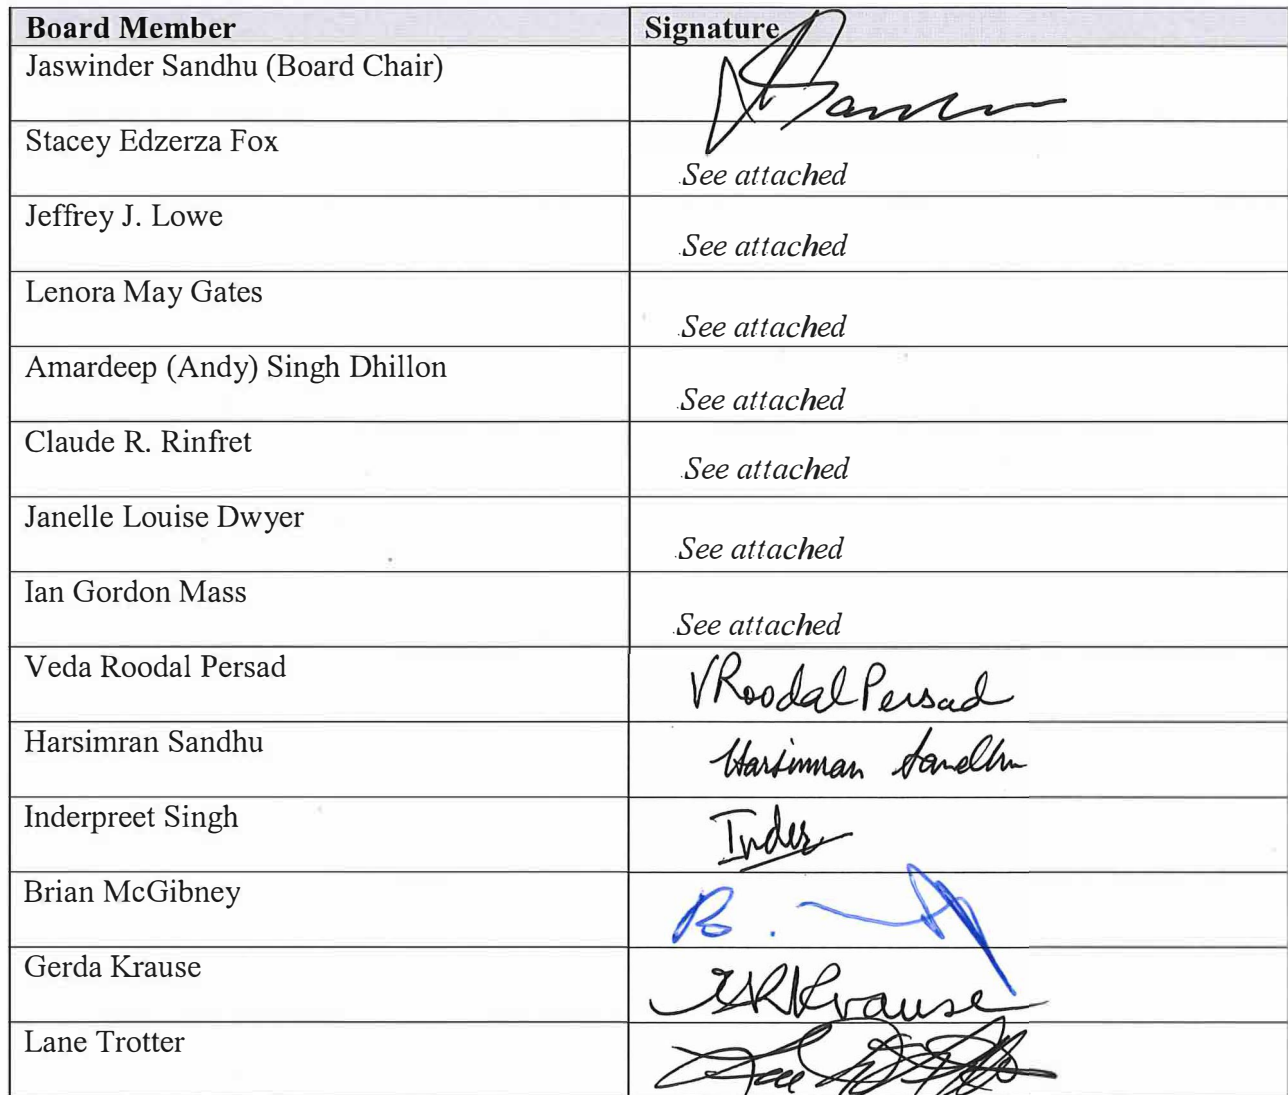 Board Member Signature
Jaswinder Sandhu (Board Chair)
Stacey Edzerza Fox See attached
Jeffrey J. Lowe See attached
Lenora May Gates See attached
Amardeep (Andy) Singh Dhillon See attached
Claude R. Rinfret See attached
Janelle Louise Dwyer See attached
Ian Gordon Mass See attached
Veda Roodal Persad VRoodal Persad
Harsimran Sandhu Harsimran Sandhu
Inderpreet Singh Inder
Brian McGibney B.
Gerda Krause GRKrause
Lane Trotter